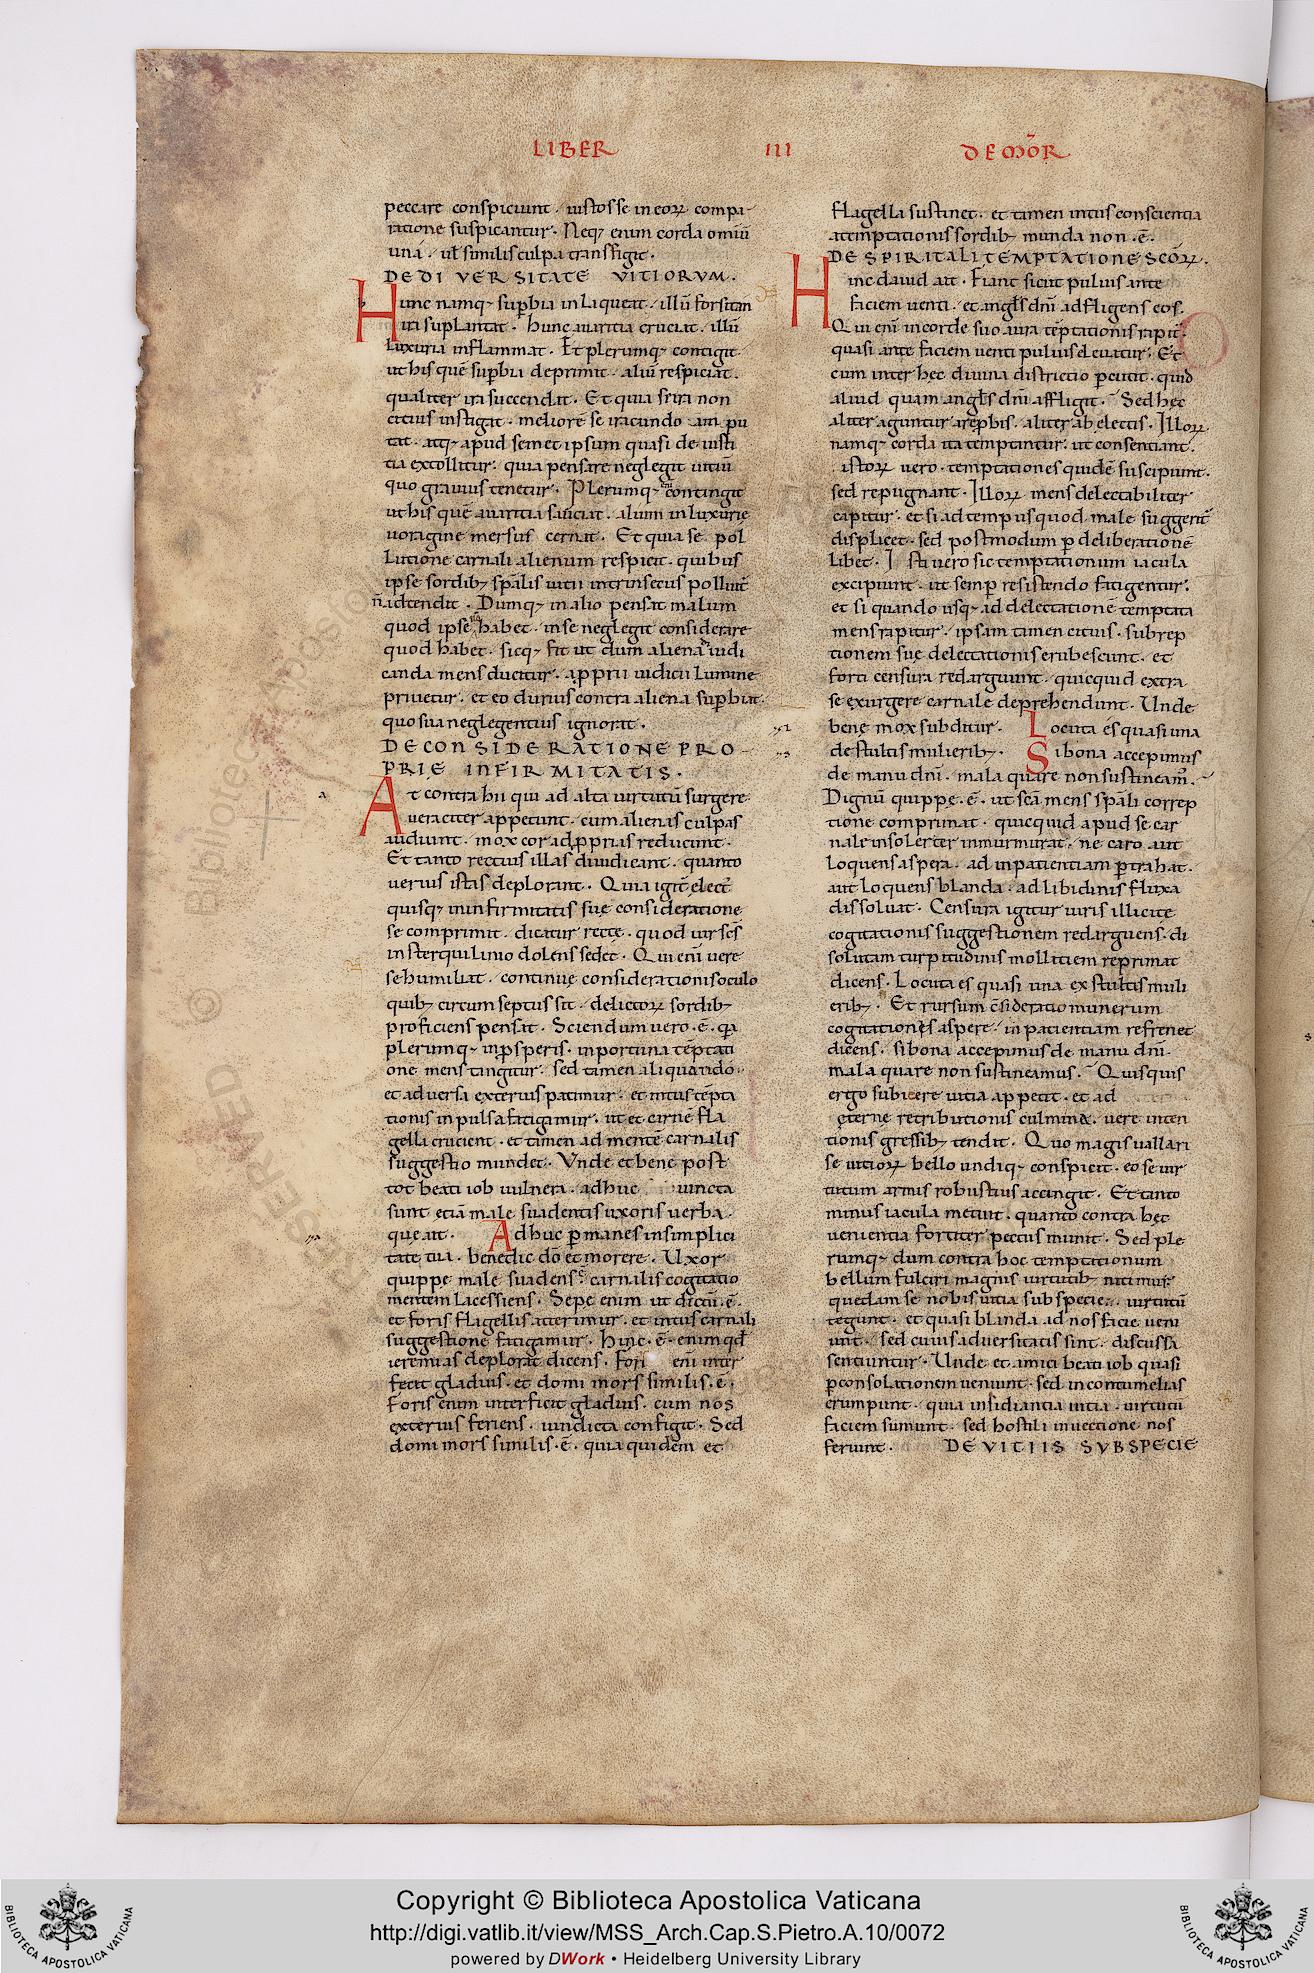 LIBER III DE MOR̄
peccare conspiciunt . iustos se in eoꝝ compa-
ratione suspicantur . Neq; enim corda omiū
una . ul̄ similis culpa transfigit .
DE DIVERSITATE VITIORVM .
Hunc namq; supbia in liqueat . illū forsitan
ira suplantat . hunc auaritia cruciat . illū
luxuria inflammat . Et plerumq; contigit
ut his quē supbia deprimit . aliū respiciat .
qualiter ira succendat . Et quia ira non
citius instigat . meliorē se iracundo iam pu
tat . atq; apud semet ipsum quasi de iusti
tia extollitur . quia pensare neglegit uitiū
quo grauius tenetur . Plerumq; contingit
ut his quē auaritia sauciat . alium in luxurie
uoragine mersus cernat . Et quia se pol
lutione carnali alienum respicit . quibus
ipse sordib; spālis uitii intrinsecus polluit̄
n̄ adtendit . Dumq; in alio pensat malum
quod ipse n̄ habet . in se neglegit considerare
quod habet . sicq; fit ut dum aliena iudi
canda mens ducitur . a pprii iudicii lumine
priuetur . et eo durius contra aliena supbiat .
quo sua neglegentius ignorat .
DE CONSIDERATIONE PRO-
PRIĘ INFIRMITATIS .
At contra hii qui ad alta uirtutū surgere
ueraciter appetunt . cum alienas culpas
audiunt . mox cor ad pprias reducunt .
Et tanto rectius illas diiudicant . quanto
uerius istas deplorant . Quia igit̄ elect̄
quisq; in infirmitatis suę consideratione
se comprimit . dicatur recte . quod uir sc̄s
in sterquilinio dolens sedet . Qui enī uere
se humiliat . continuę considerationis oculo
quib; circumseptus sit . delictoꝝ sordib;
proficiens pensat . Sciendum uero . ē . qa
plerumq; in psperis . inportuna tēptati
one mens tangitur . sed tamen aliquando .
et aduersa exterius patimur . et intus tēpta
tionis inpulsa fatigamur . ut et carnē fla
gella crucient . et tamen ad mentē carnalis
suggestio inundet . Vnde et bene post
tot beati iob uulnera . adhuc iuncta
sunt etiā male suadentis uxoris uerba .
quę ait . Adhuc pmanes in simplici
tate tua . benedic dō et morere . Uxor
quippe male suadens . carnalis cogitatio
mentem lacessiens . Sepe enim ut dictū . ē .
et foris flagellis atterimur . et intus carnali
suggestione fatigamur . Hinc . ē . enim qd̄
ieremias deplorat dicens . Foris enī inter
fecit gladius . et domi mors similis . ē .
Foris enim interficit gladius . cum nos
exterius feriens . uindicta configit . Sed
domi mors similis . ē . quia quidem et
flagella sustinet . et tamen intus conscientia
a temptationis sordib; munda non . ē .
DE SPIRITALI TEMPTATIONE SCŌꝝ .
Hinc dauid ait . Fiant sicut puluis ante
faciem uenti . et angl̄s dn̄i adfligens eos .
Qui enī in corde suo aura tēptationis rapit̄
quasi ante faciem uenti puluis eleuatur . Et
cum inter hęc diuina districtio pcutit . quid
aliud quam angl̄s dn̄i affligit . Sed hęc
aliter aguntur a repbis . aliter ab electis . Illoꝝ
namq; corda ita temptantur . ut consentiant .
istoꝝ uero . temptationes quidē suscipiunt .
sed repugnant . Illoꝝ mens delectabiliter
capitur . et si ad tempus quod male suggerit̄
displicet . sed postmodum p deliberationē
libet . Isti uero sic temptationum iacula
excipiunt . ut semp resistendo fatigentur .
et si quando usq; ad delectationē temptata
mens rapitur . ipsam tamen citius . subrep
tionem suę delectationis erubescunt . et
forti censura redarguunt . quicquid extra
se exurgere carnale deprehendunt . Unde
bene mox subditur . Locuta es quasi una
de stultis mulierib; . Si bona accepimus
de manu dn̄i . mala quare non sustineam̄ .
Dignū quippe . ē . ut sc̄a mens spāli correp
tione comprimat . quicquid apud se car
nale insolerter inmurmurat . ne caro aut
loquens aspera . ad inpatientiam ptrahat .
aut loquens blanda . ad libidinis fluxa
dissoluat . Censura igitur uiris illicite
cogitationis suggestionem redarguens . di
solutam turpitudinis mollitiem reprimat
dicens . Locuta es quasi una ex stultis muli
erib; . Et rursum c̄sideratio munerum
cogitationes aspere . inpatientiam refrenet
dicens . si bona accepimus de manu dn̄i .
mala quare non sustineamus . Quisquis
ergo subicere uitia appetit . et ad
ęterne retributionis culmina . uere inten
tionis gressib; tendit . Quo magis uallari
se uitioꝝ bello undiq; conspicit . eo se uir
tutum armis robustius accingit . Et tanto
minus iacula metuit . quanto contra hęc
uenientia fortiter pectus munit . Sed ple
rumq; dum contra hoc temptationum
bellum fulciri magnis uirtutib; nitimur .
quedam se nobis uitia sub specie uirtutū
tegunt . et quasi blanda ad nos facie ueni
unt . sed cuius aduersitatis sint . discussa
sentiuntur . Unde et amici beati iob quasi
p consolationem ueniunt . sed in contumelias
erumpunt . quia insidiantia uitia . uirtutū
faciem sumunt . sed hostili inuectione nos
feriunt . DE VITIIS SVB SPECIE
RESERVED © Biblioteca Apostolica
Copyright © Biblioteca Apostolica Vaticana
http://digi.vatlib.it/view/MSS_Arch.Cap.S.Pietro.A.10/0072
powered by DWork • Heidelberg University Library
BIBLIOTECA APOSTOLICA VATICANA
BIBLIOTECA APOSTOLICA VATICANA